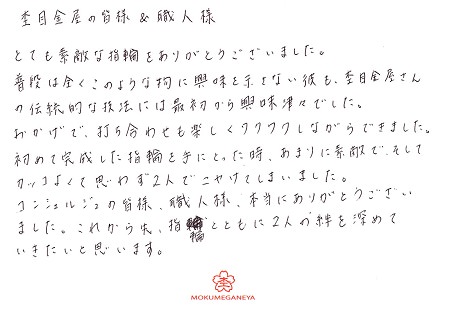 杢目金屋の皆様 & 職人様
とても素敵な指輪をありがとうございました。
普段は全くこのような物に興味を示さない彼も、杢目金屋さん
の伝統的な技法には最初から興味津々でした。
おかげで、打ち合わせも楽しくワクワクしながらできました。
初めて完成した指輪を手にとった時、あまりに素敵で、そして
カッコよくて思わず2人でニヤけてしまいました。
コンシェルジュの皆様、職人様、本当にありがとうござい
ました。これから先、指輪とともに2人の絆を深めて
いきたいと思います。
MOKUMEGANEYA